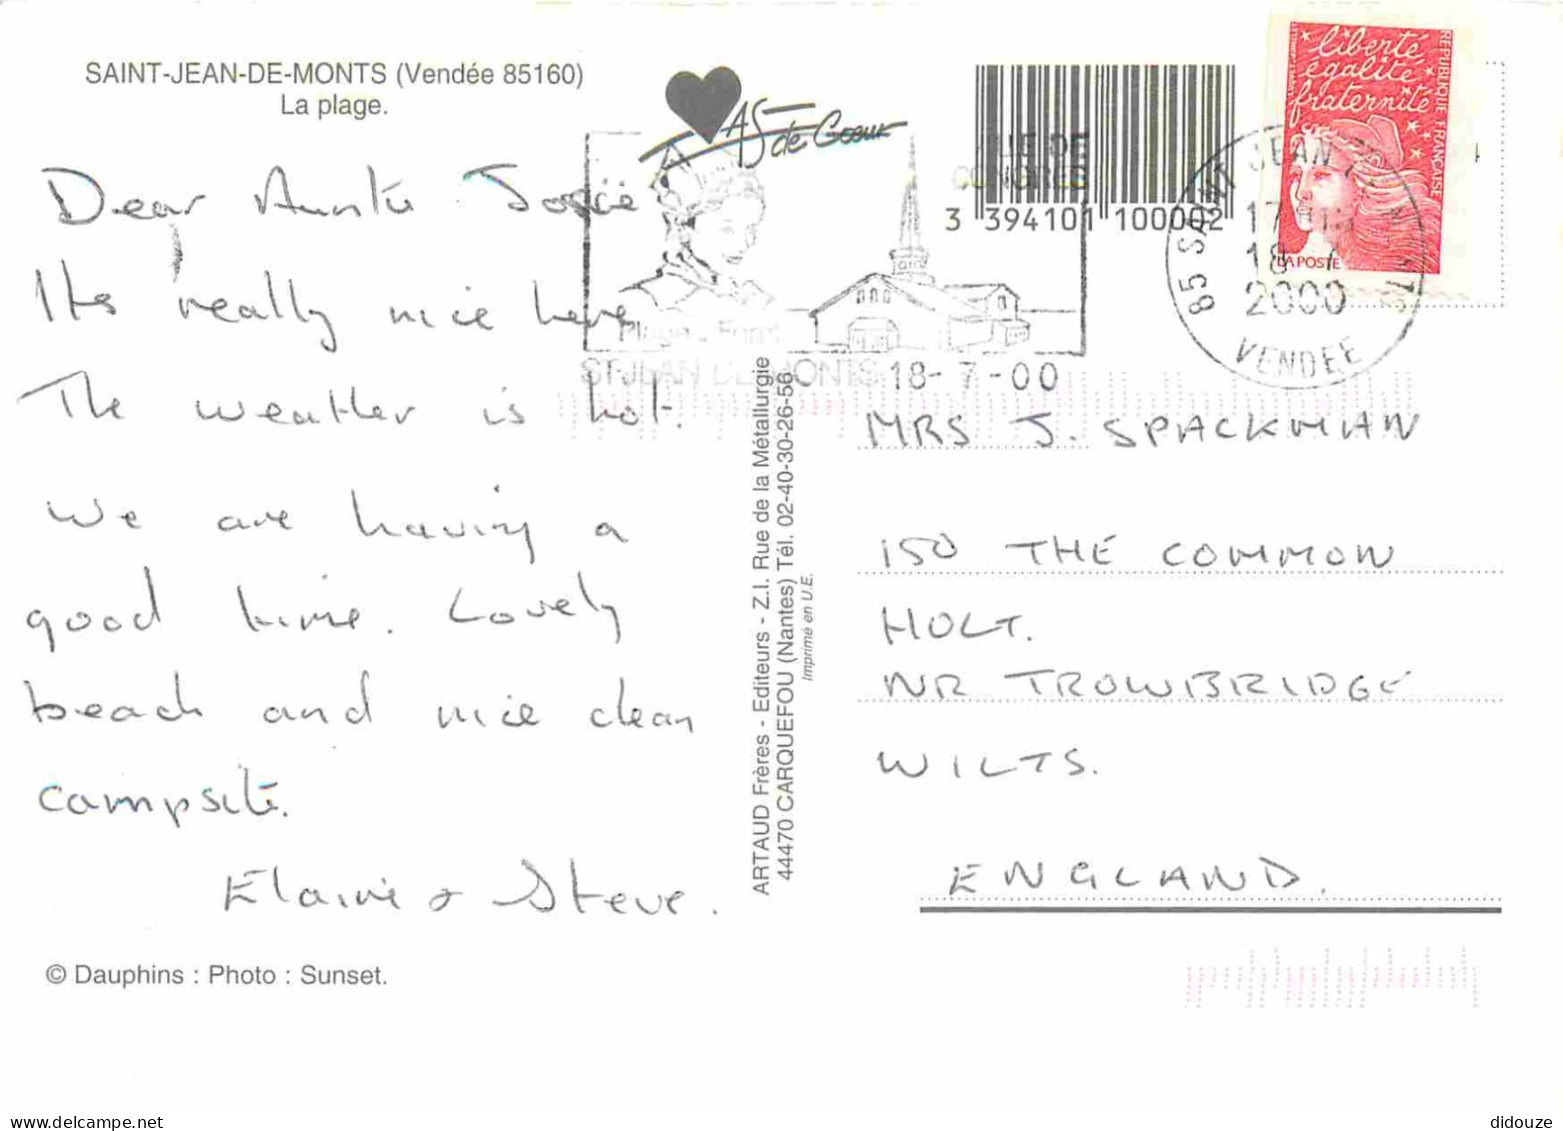 SAINT-JEAN-DE-MONTS (Vendée 85160)
La plage.
AS de Coeur
Dear Auntie Josie
Its really nice here
The weather is hot.
We are having a
good time. Lovely
beach and nice clean
campsite.
Elaine & Steve.
© Dauphins : Photo : Sunset.
ARTAUD Frères - Editeurs - Z.I. Rue de la Métallurgie
44470 CARQUEFOU (Nantes) Tél. 02-40-30-26-56
Imprimé en U.E.
CONGRES
Plage - Foret
ST JEAN DE MONTS 18-7-00
3 394101 100002
liberté
égalité
fraternité
REPUBLIQUE FRANÇAISE
LA POSTE
85 SAINT JEAN DE MONTS
17
18-7
2000
VENDEE
MRS J. SPACKMAN
150 THE COMMON
HOLT.
NR TROWBRIDGE
WILTS.
ENGLAND.
didouze